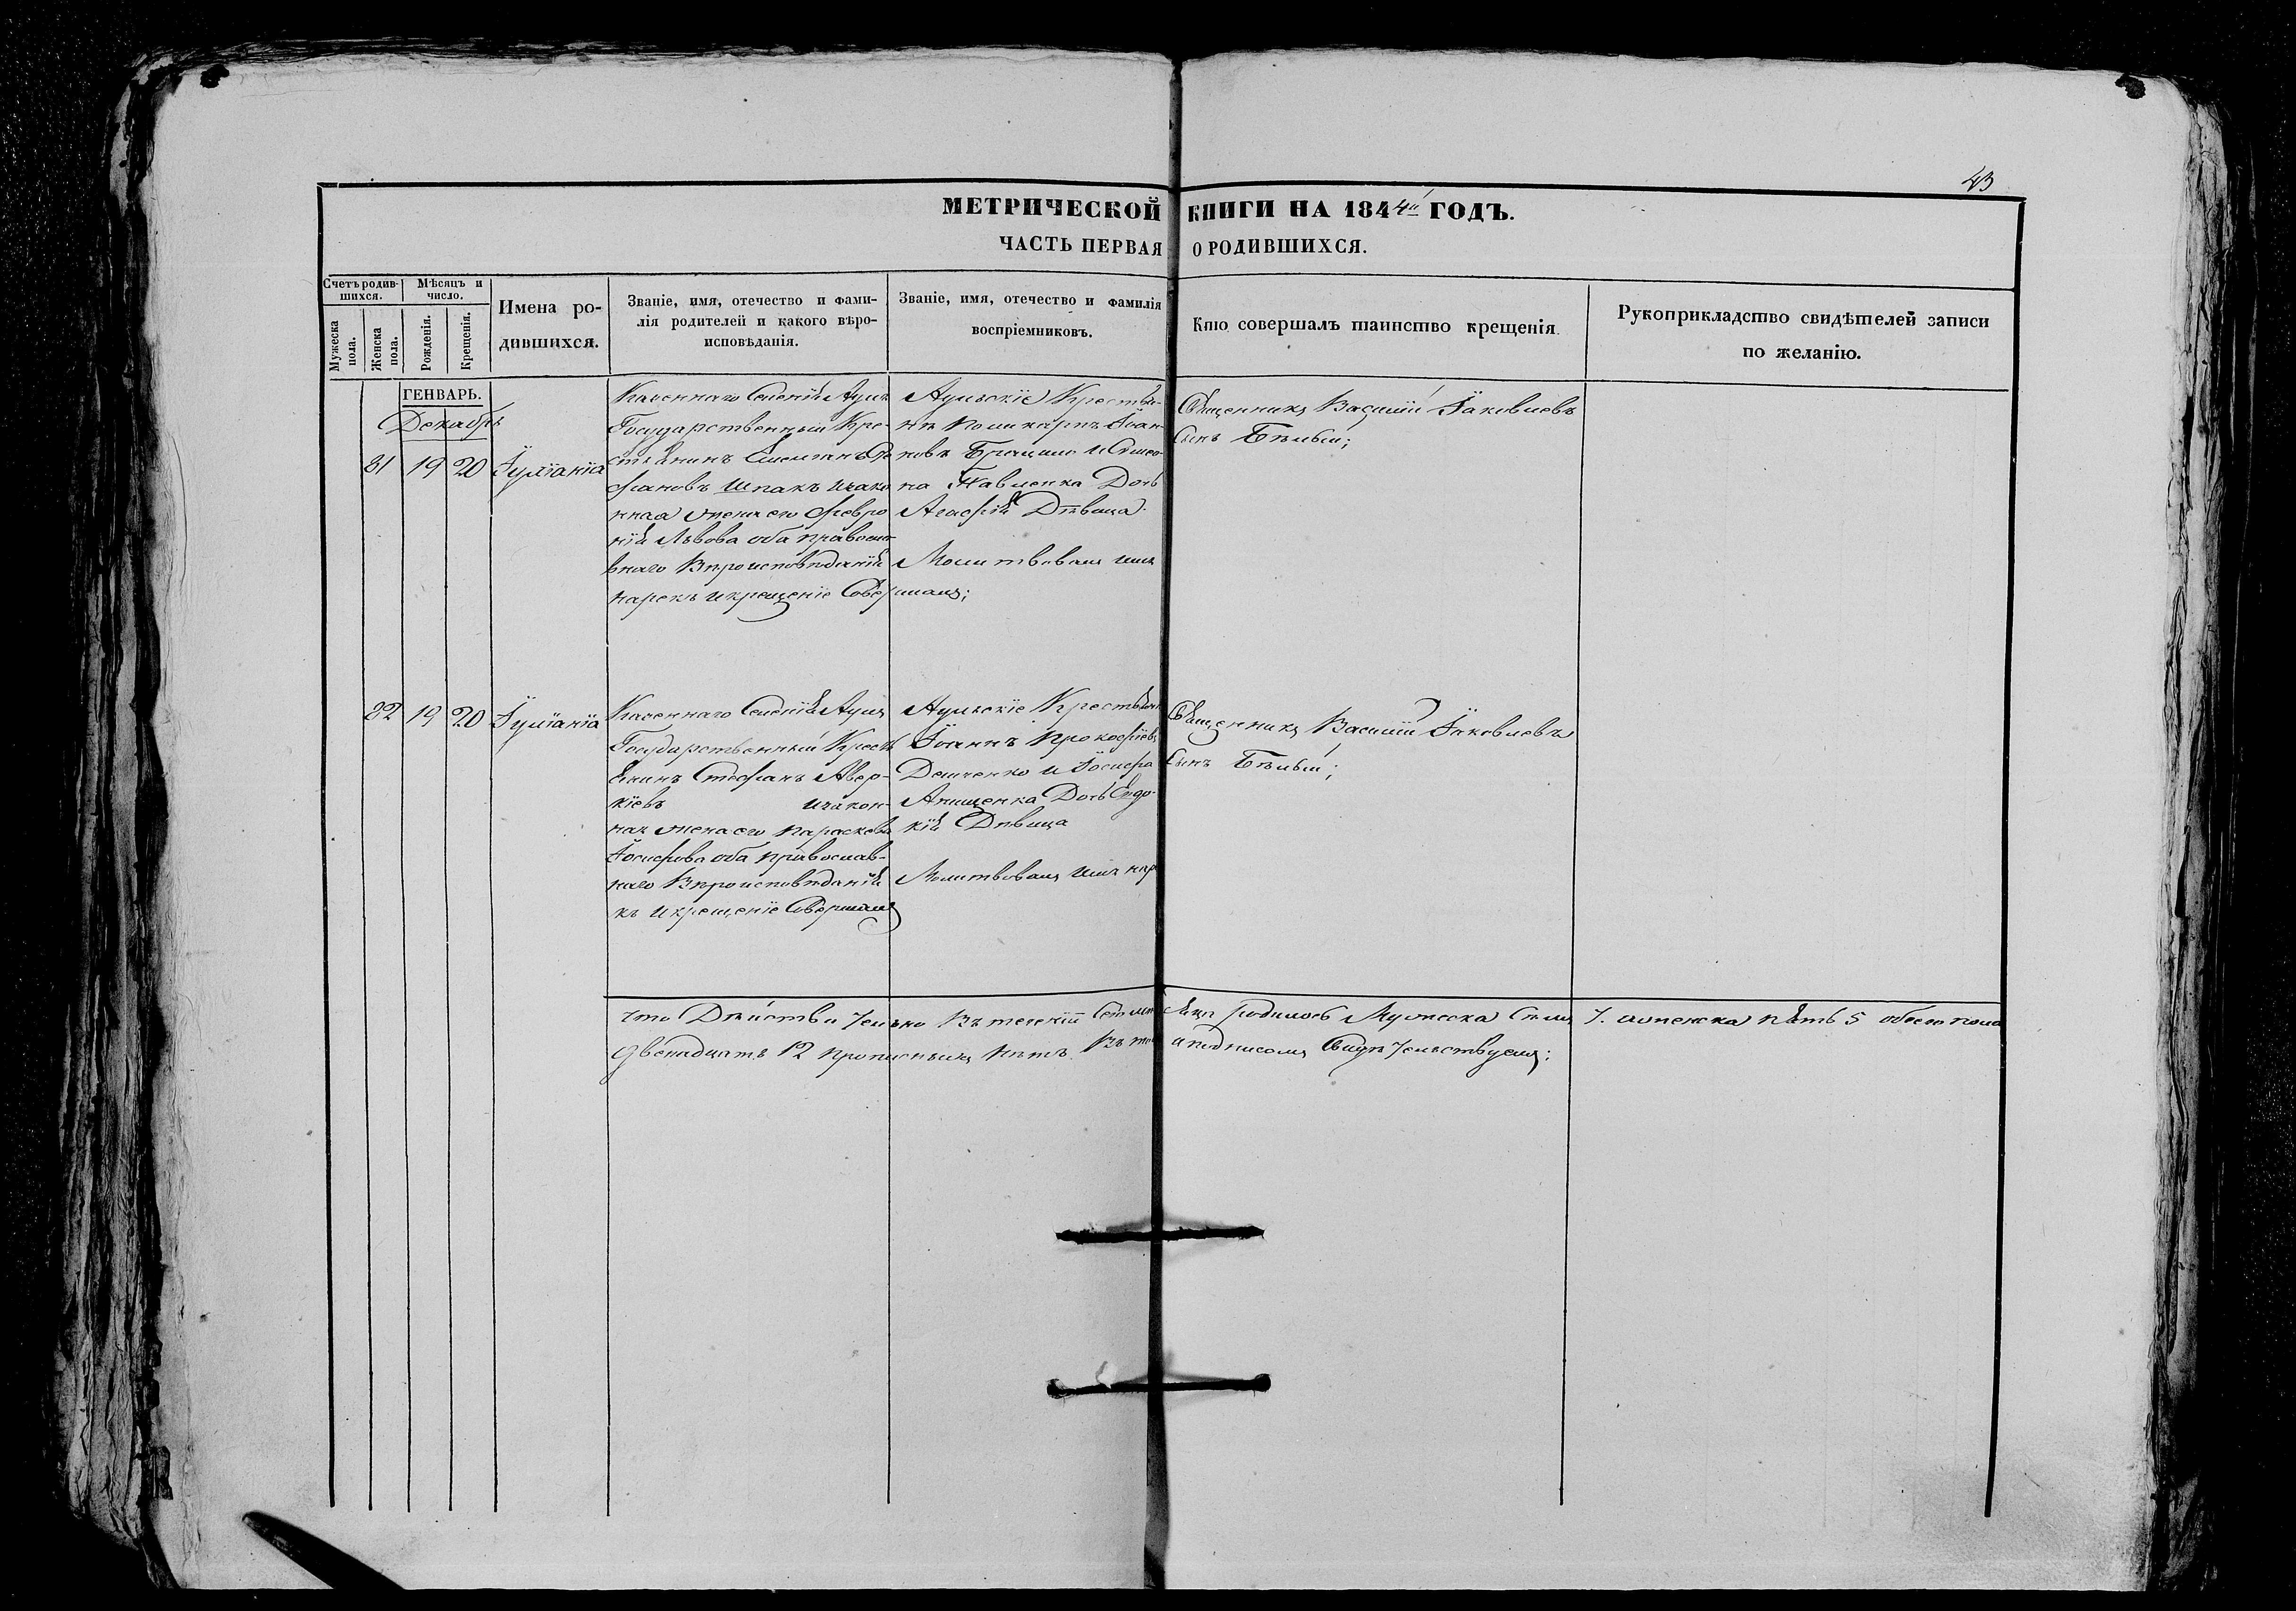 43
МЕТРИЧЕСКОЙ КНИГИ НА 1844й ГОДЪ.
ЧАСТЬ ПЕРВАЯ О РОДИВШИХСЯ.
Счетъ родив-
шихся.
Мѣсяцъ и
число.
Мужеска
пола.
Женска
пола.
Рожденія.
Крещенія.
Имена ро-
дившихся.
Званіе, имя, отечество и фами-
лія родителей и какого вѣро-
исповѣданія.
Званіе, имя, отечество и фамилія
воспріемниковъ.
Кто совершалъ таинство крещенія.
Рукоприкладство свидѣтелей записи
по желанію.
ГЕНВАРЬ.
Декабрь
81 19 20 Іуліанія
Казеннаго Селенія Аулъ
Государственный Кре-
стьянинъ
Шпакъ изако
нная жена его Февро
нія Львова оба правосла
внаго Вѣроисповѣданія
нарекъ и крещеніе Совершалъ;
Аульскіе Крестья-
не Поликарпъ Іоан-
новъ
на Павленка Дочь
Агафія Дѣвица.
Молитвовалъ имя
Священникъ Василій Іаковлевъ
Сынъ Бѣлый;
82 19 20 Іуліанія
Казеннаго Селенія Аулъ
Государственный Крестъ
янинъ Стефанъ Авер-
кіевъ изакон-
ная жена его Параскева
Іосифова оба православ-
наго Вѣроисповѣданія
къ и крещеніе Совершалъ
Аульскіе Крестьяне
Іоаннъ Прокофіевъ
Демченко и Іосифа
Анищенка Дочь Евдо-
кія Дѣвица
Молитвовалъ имя нар
Священникъ Василій Іаковлевъ
Сынъ Бѣлый;
Что Дѣйствительно Въ теченіи родилось Мужеска 7. аженска пять 5 обоего пола
двенадцать 12 прописныхъ нѣтъ. Въ томъ и подписомъ Свидѣтельствуемъ;